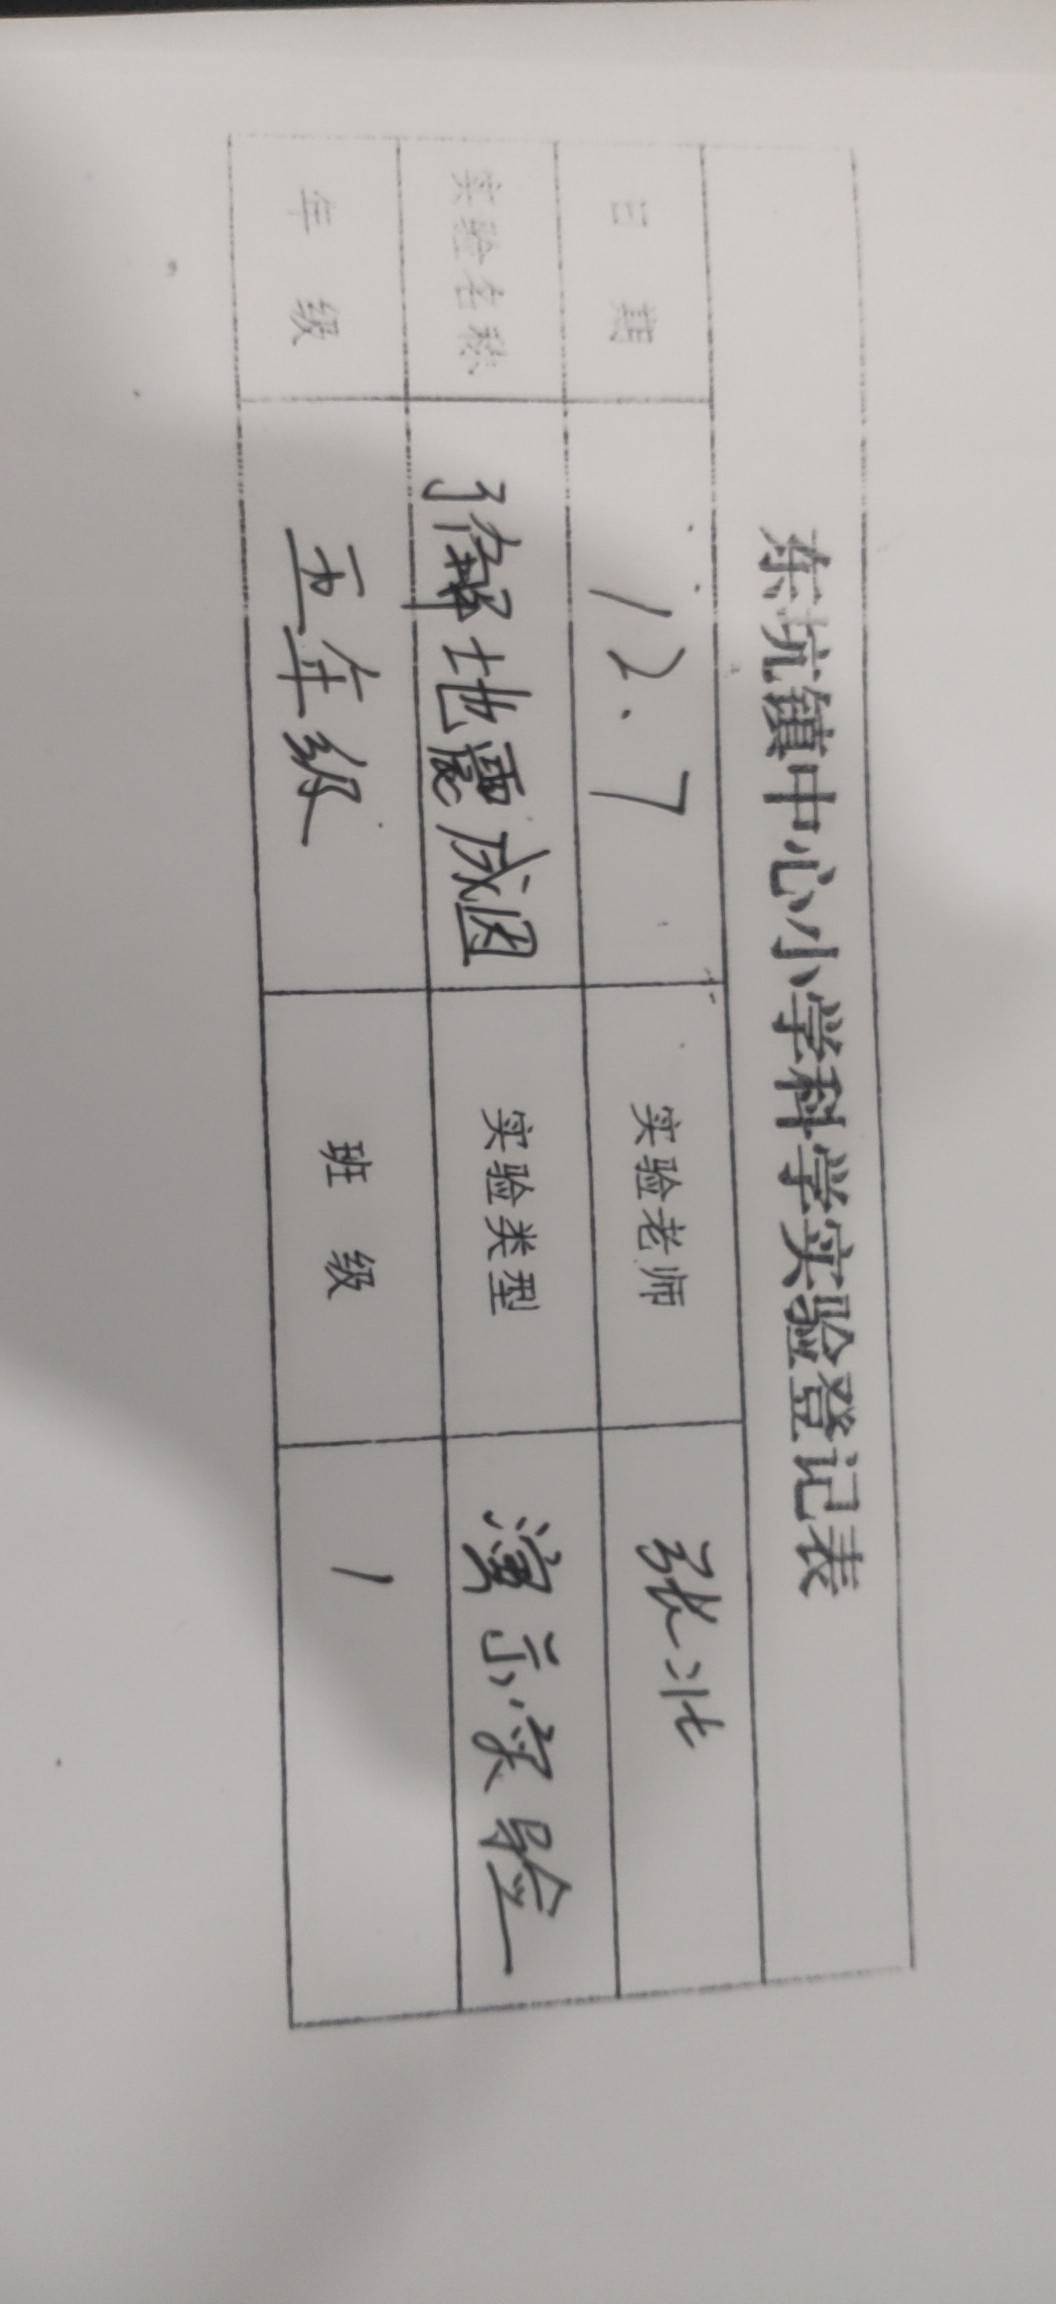 东坑镇中心小学科学实验登记表
日期 12.7 实验老师 张北
实验名称 了解地震成因 实验类型 演示实验
年级 五年级 班级 1